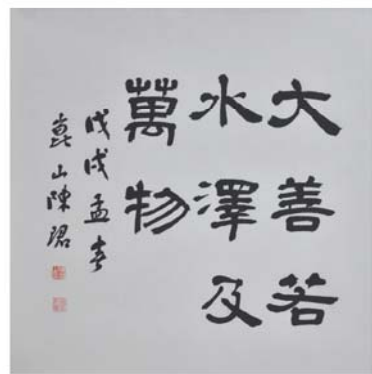 大善若
水澤及
萬物
戊戌孟春
崑山陳珺